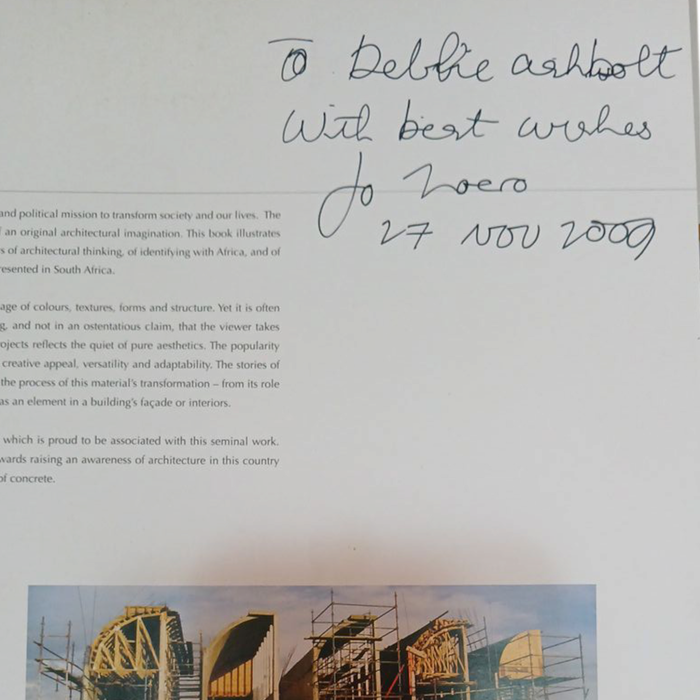 To Debbie ashbolt
With best wishes
Jo Noero
27 NOV 2009
and political mission to transform society and our lives. The
an original architectural imagination. This book illustrates
s of architectural thinking, of identifying with Africa, and of
esented in South Africa.
age of colours, textures, forms and structure. Yet it is often
g, and not in an ostentatious claim, that the viewer takes
ojects reflects the quiet of pure aesthetics. The popularity
creative appeal, versatility and adaptability. The stories of
the process of this material's transformation – from its role
as an element in a building's façade or interiors.
which is proud to be associated with this seminal work.
wards raising an awareness of architecture in this country
of concrete.